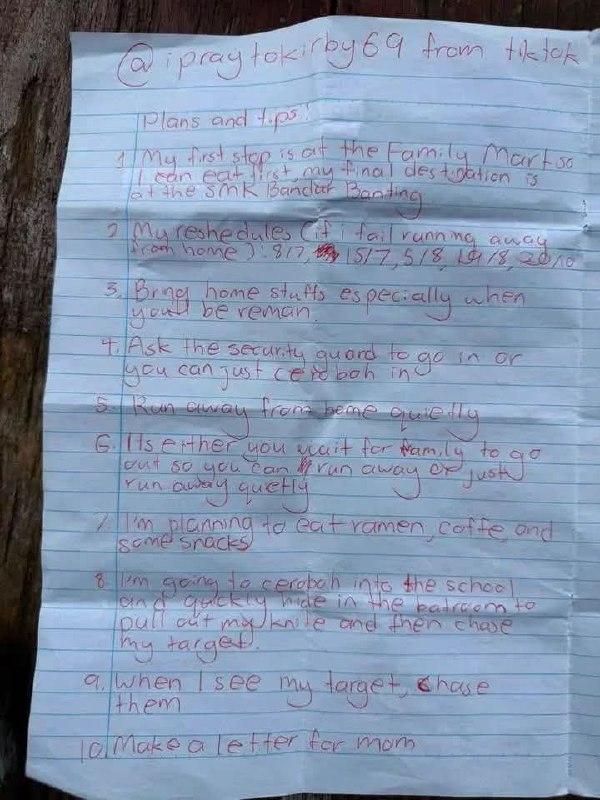 @ipraytokirby69 from tiktok
Plans and tips!
1. My first stop is at the Family Mart so
I can eat first, my final destination is
at the SMK Bandar Banting
2. My reshedules (if i fail running away
from home): 8/7, 15/7, 5/8, 19/8, 20/10
3. Bring home stuffs especially when
you'll be reman.
4. Ask the security guard to go in or
you can just ceroboh in
5. Run away from home quietly
6. Its either you wait for family to go
out so you can run away or just
run away quetly
7. I'm planning to eat ramen, coffe and
some snacks
8. I'm going to ceroboh into the school
and quickly hide in the batroom to
pull out my knife and then chase
my target.
9. When I see my target, chase
them
10. Make a letter for mom